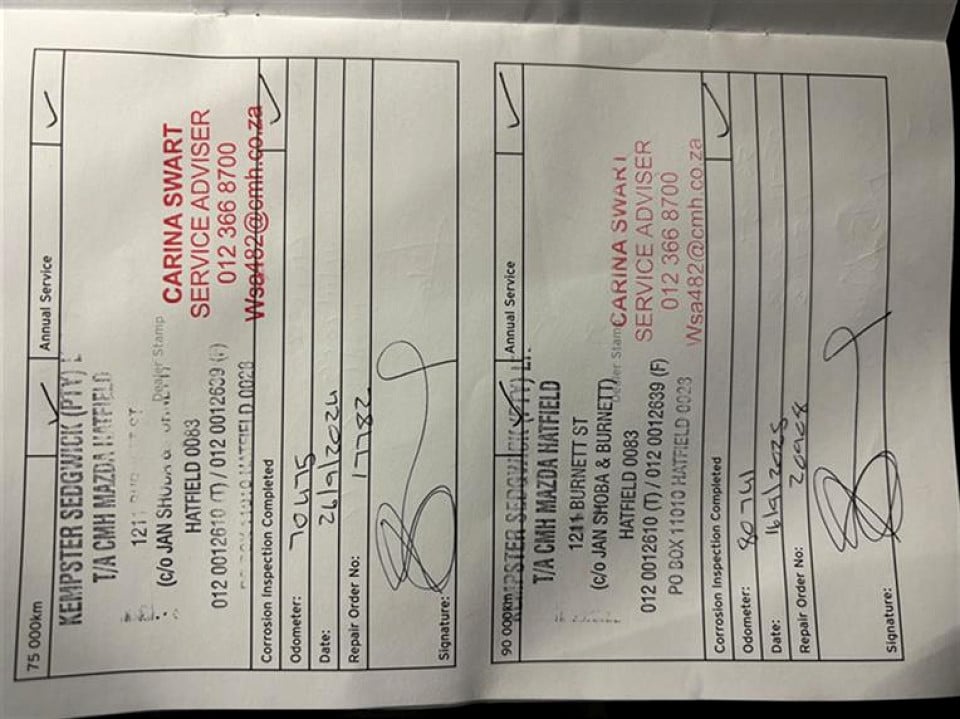 75 000km ✓ Annual Service ✓
KEMPSTER SEDGWICK (PTY) L
T/A CMH MAZDA HATFIELD
1211 BURNETT ST
(c/o JAN SHOBA & BURNETT)
HATFIELD 0083
012 0012610 (T) / 012 0012639 (F)
PO BOX 11010 HATFIELD 0028
Dealer Stamp
CARINA SWART
SERVICE ADVISER
012 366 8700
Wsa482@cmh.co.za
Corrosion Inspection Completed ✓
Odometer: 70475
Date: 26/9/2024
Repair Order No: 17782
Signature:
90 000km ✓ Annual Service ✓
KEMPSTER SEDGWICK (PTY) LT
T/A CMH MAZDA HATFIELD
1211 BURNETT ST
(c/o JAN SHOBA & BURNETT)
HATFIELD 0083
012 0012610 (T) / 012 0012639 (F)
PO BOX 11010 HATFIELD 0028
Dealer Stam
CARINA SWART
SERVICE ADVISER
012 366 8700
Wsa482@cmh.co.za
Corrosion Inspection Completed ✓
Odometer: 80741
Date: 16/9/2025
Repair Order No: 20908
Signature: